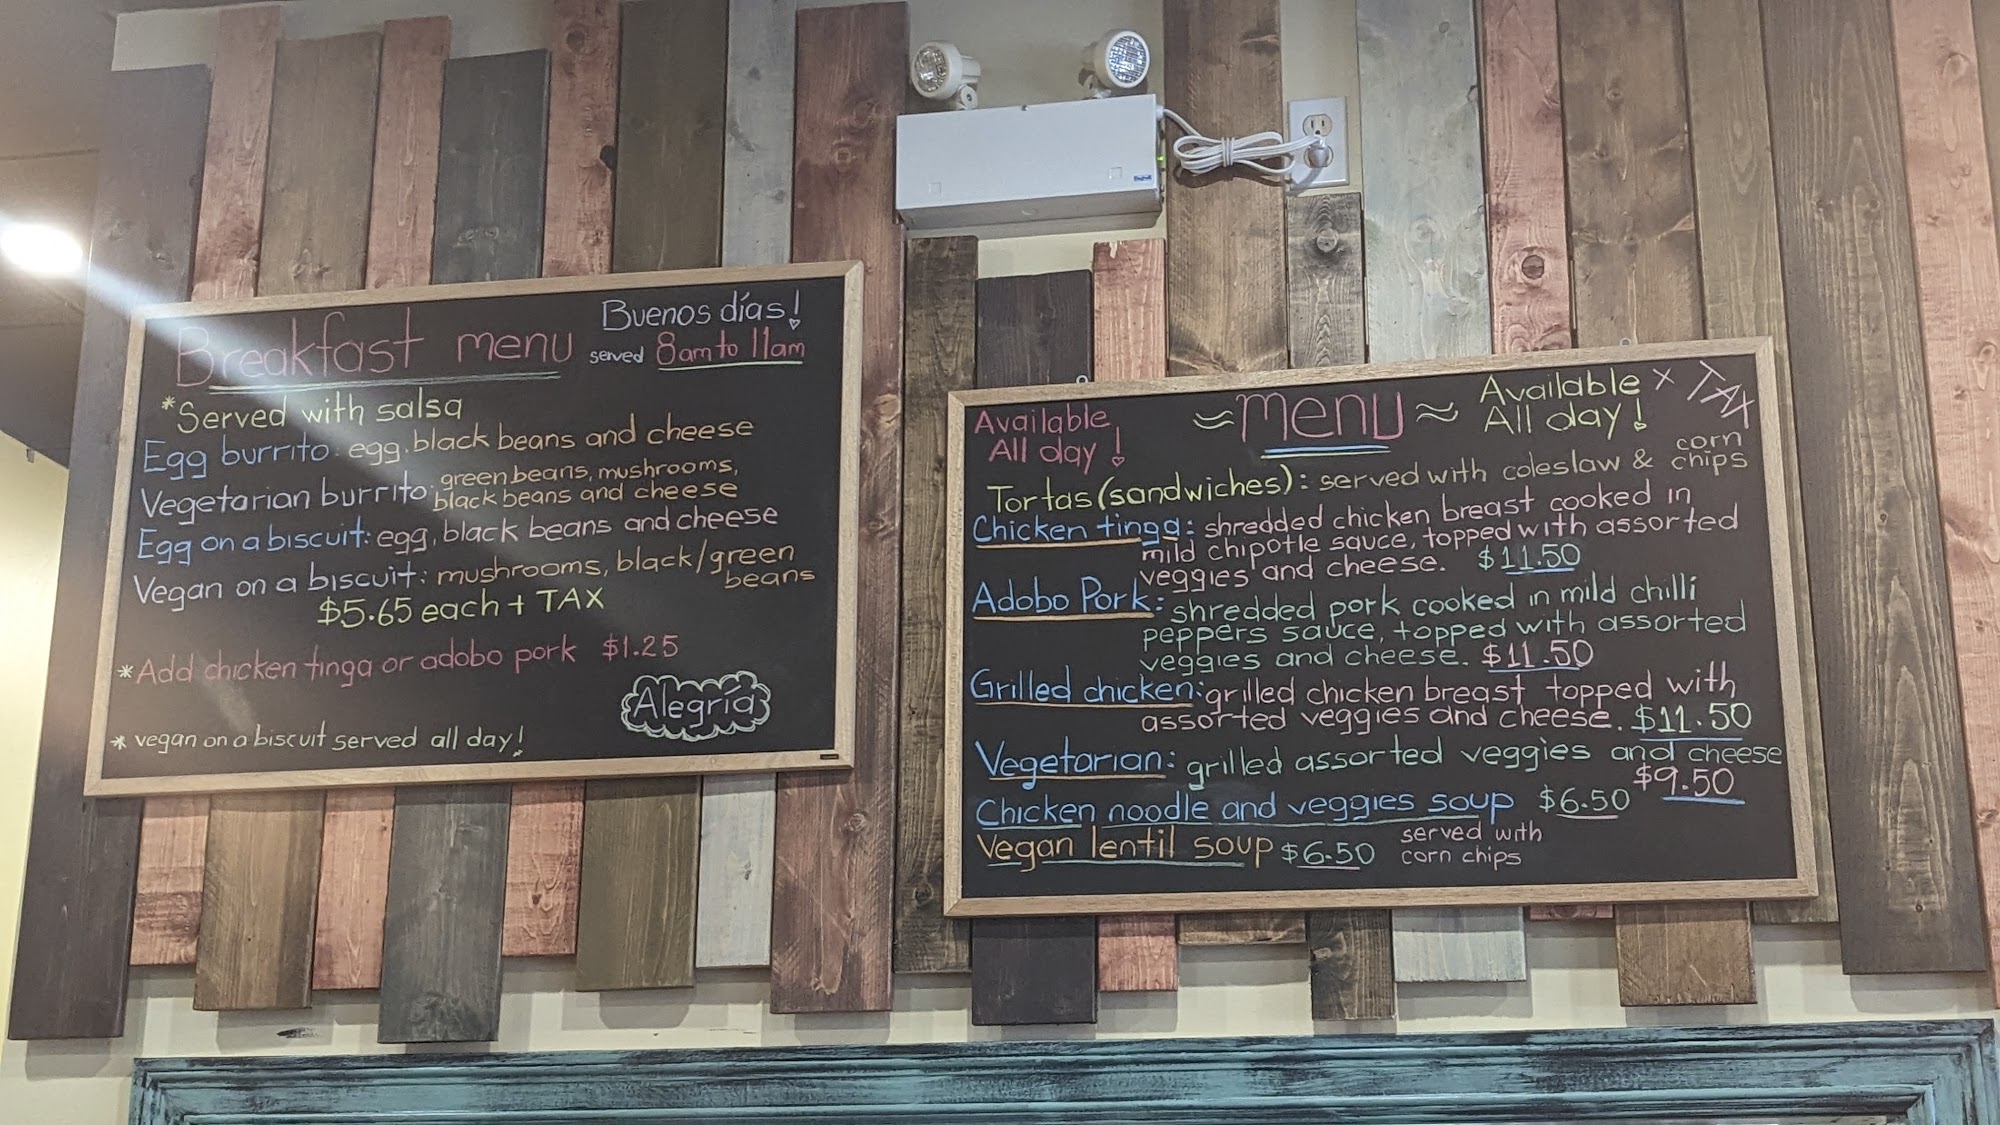 Breakfast menu
Buenos días!
served 8am to 11am
*Served with salsa
Egg burrito: egg, black beans and cheese
Vegetarian burrito: green beans, mushrooms,
black beans and cheese
Egg on a biscuit: egg, black beans and cheese
Vegan on a biscuit: mushrooms, black/green
beans
$5.65 each + TAX
*Add chicken tinga or adobo pork $1.25
Alegría
* vegan on a biscuit served all day!
Available
All day!
≈ menu ≈
Available
All day!
x TAX
Tortas (sandwiches): served with coleslaw & corn
chips
Chicken tinga: shredded chicken breast cooked in
mild chipotle sauce, topped with assorted
veggies and cheese. $11.50
Adobo Pork: shredded pork cooked in mild chilli
peppers sauce, topped with assorted
veggies and cheese. $11.50
Grilled chicken: grilled chicken breast topped with
assorted veggies and cheese. $11.50
Vegetarian: grilled assorted veggies and cheese
$9.50
Chicken noodle and veggies soup $6.50
Vegan lentil soup $6.50
served with
corn chips